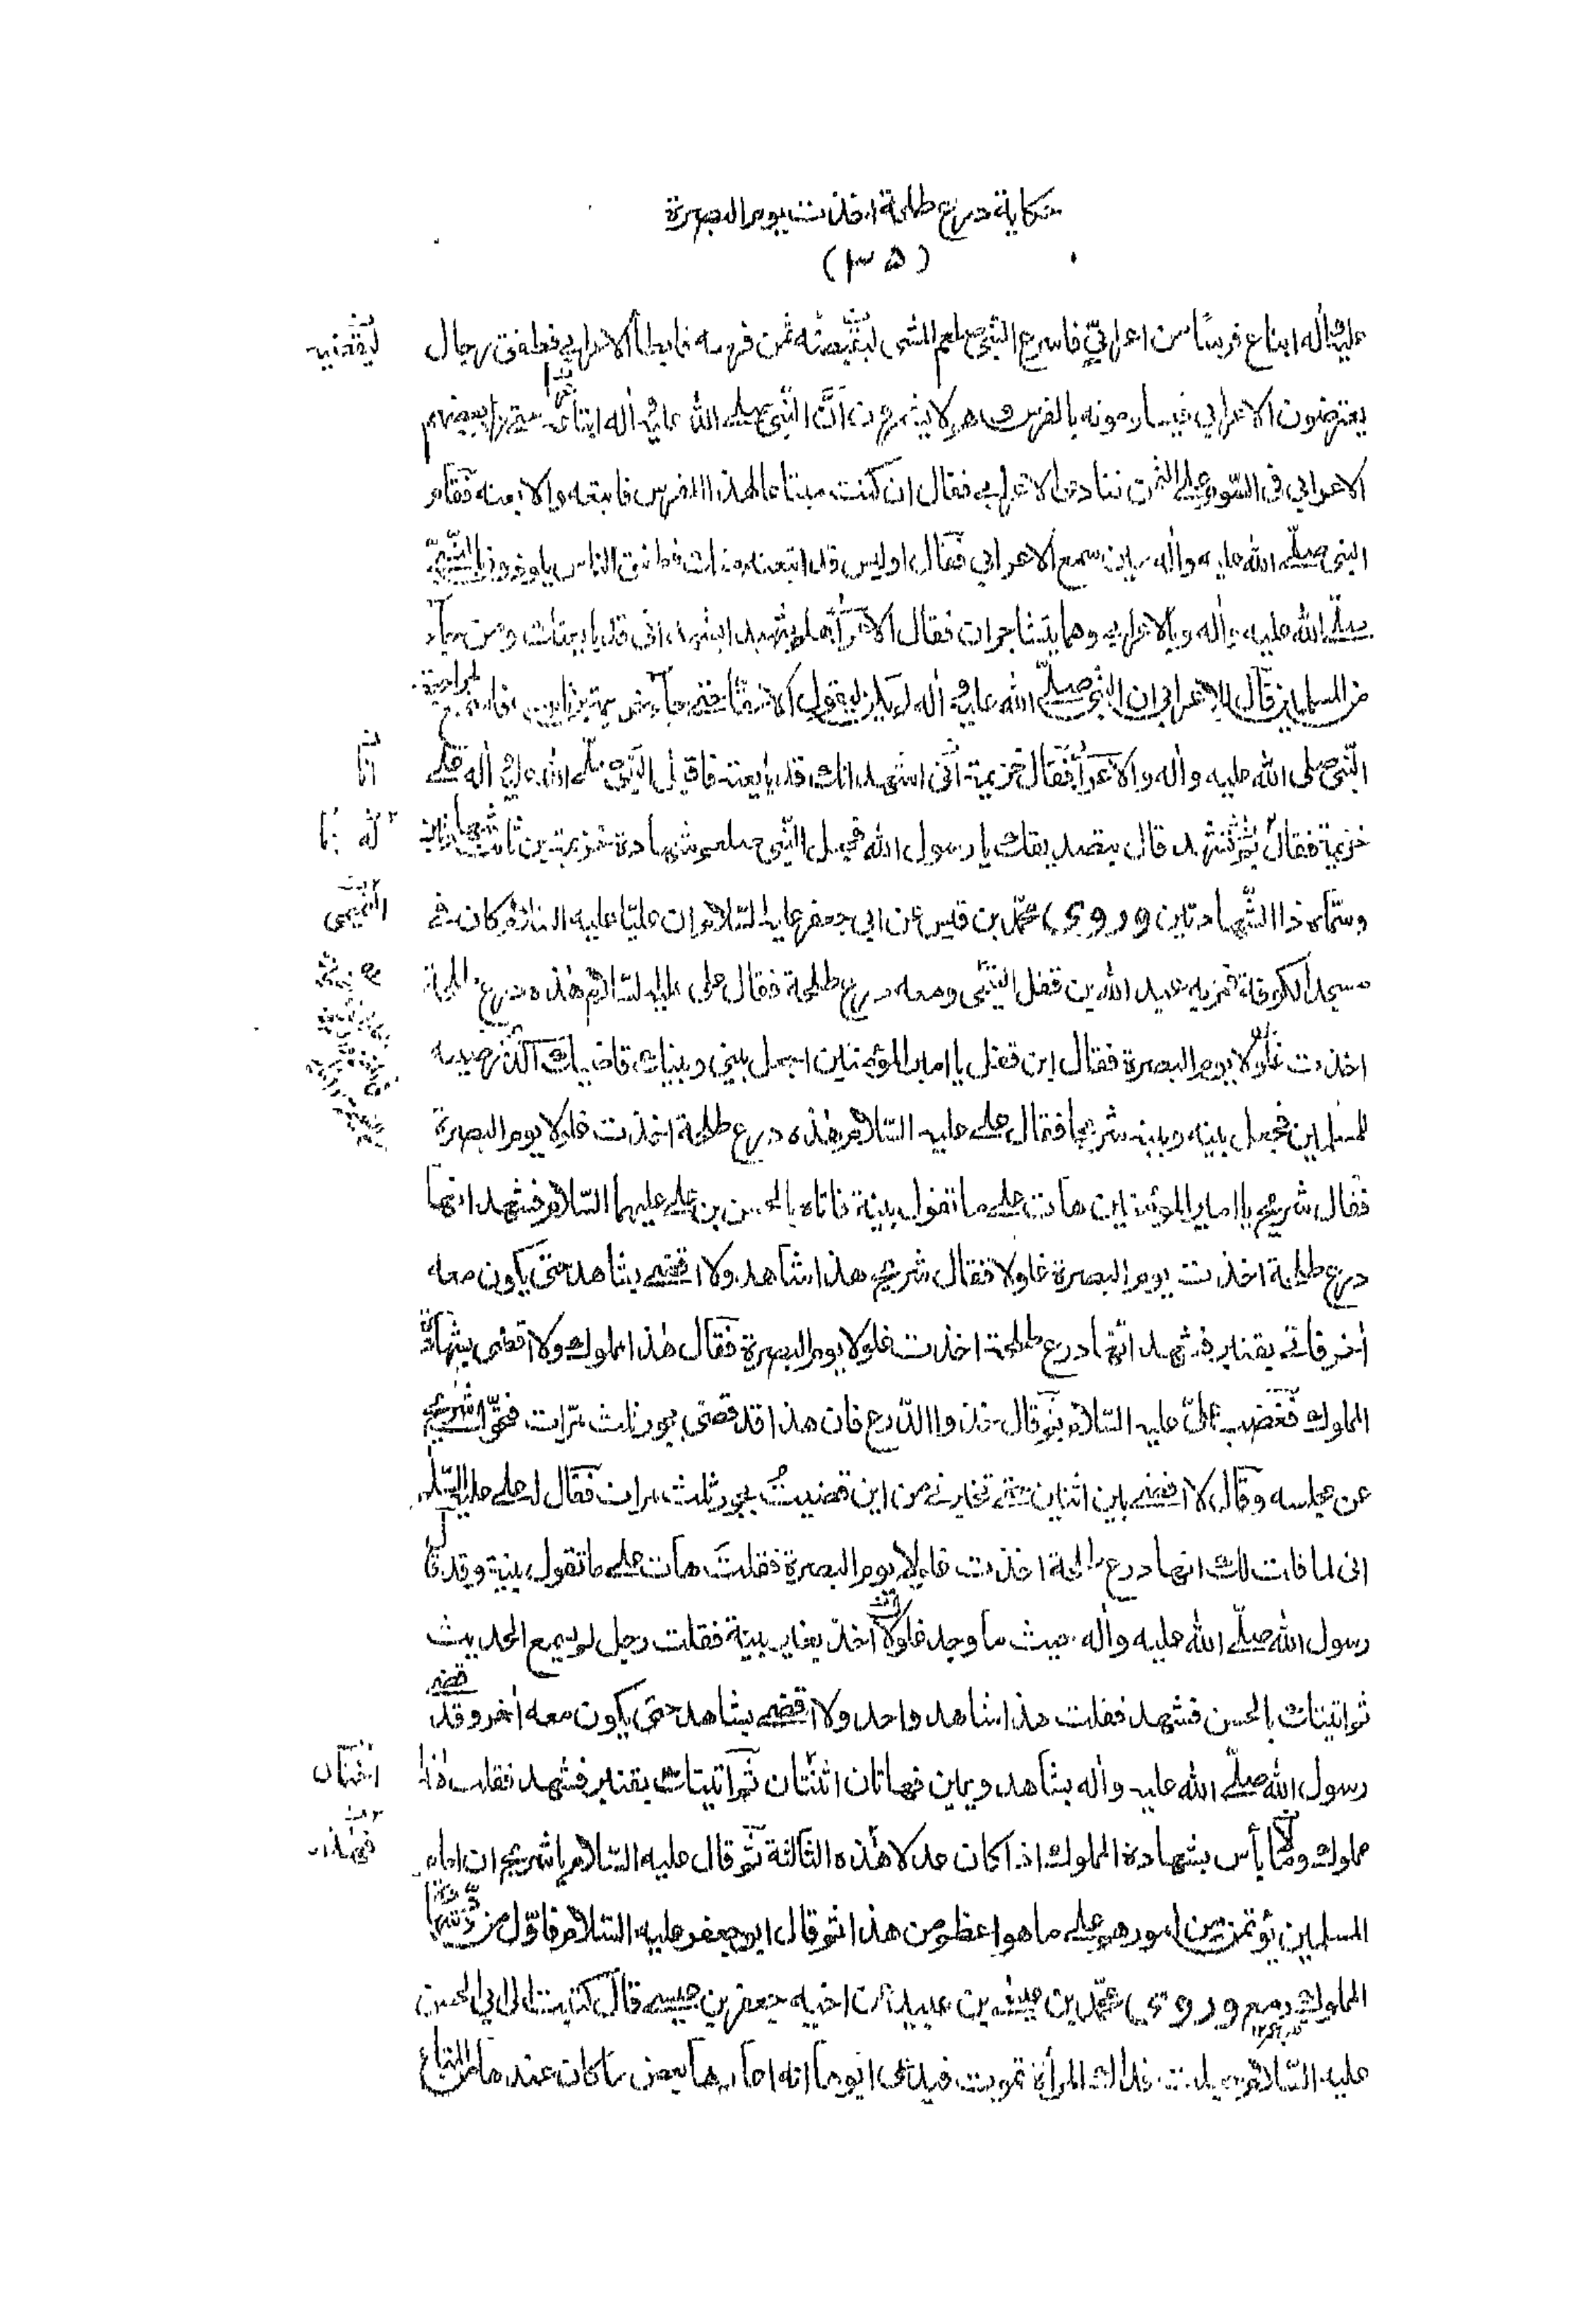 حكاية درع طلحة اخذت يوم البصرة
(٣٥)
عليه وآله ابتاع فرسًا من اعرابيّ فاسرع النّبيّ صلعم المشى ليقبضه ثمن فرسه فابطأ الاعرابي فطفق رجال
ليقضيه
يعترضون الاعرابي فيساومونه بالفرس وهم لا يشعرون انَّ النّبيّ صلى الله عليه وآله ابتاعه حتى زاد بعضهم
الاعرابي فى السّوم على الثمن فنادى الاعرابي فقال ان كنت مبتاعا لهذا الفرس فابتعه والا بعته فقام
النبى صلّى الله عليه وآله حين سمع الاعرابي فقال اوليس قد ابتعته منك فطفق الناس يلوذون بالنّبيّ
صلّى الله عليه وآله وبالاعرابي وهما يتشاجران فقال الاعرابي هلم شهيدا يشهد انى قد بايعتك ومن جاء
من المسلمين قال للاعرابي ان النّبي صلّى الله عليه وآله لم يكن ليقول الا حقّا حتى جاء خزيمة بن ثابت فاستمع
لمراجعة
النّبيّ صلى الله عليه وآله والاعرابي فقال خزيمة انّى اشهد انك قد بايعته فاقبل النّبيّ صلّى الله عليه وآله على
انا
خزيمة فقال بم تشهد قال بتصديقك يا رسول الله فجعل النّبي صلعم شهادة خزيمة بن ثابت شهادتين
وسمّاه ذا الشّهادتين وروى محمّد بن قيس عن ابى جعفر عليه السّلام ان عليّا عليه السّلام كان فى
التميمى
مسجد الكوفة فمرّ به عبد الله بن قفل التّيمى ومعه درع طلحة فقال على عليه السّلام هذه درع طلحة
اخذت غلولا يوم البصرة فقال ابن قفل يا امير المؤمنين اجعل بينى وبينك قاضيك الّذى رضيته
للمسلمين فجعل بينه وبينه شريحا فقال على عليه السّلام هذه درع طلحة اخذت غلولا يوم البصرة
فقال شريح يا امير المؤمنين هات على ما تقول بينة فاتاه بالحسن بن على عليهما السّلام فشهد انها
درع طلحة اخذت يوم البصرة غلولا فقال شريح هذا شاهد ولا اقضى بشاهد حتى يكون معه
آخر فاتى بقنبر فشهد انّها درع طلحة اخذت غلولا يوم البصرة فقال هذا مملوك ولا اقضى بشهادة
المملوك فغضب علىّ عليه السّلام ثم قال خذوا الدّرع فان هذا قد قضى بجور ثلث مرّات فتحوّل شريح
عن مجلسه وقال لا اقضى بين اثنين حتى تخبرنى من اين قضيتُ بجور ثلث مرات فقال له على عليه السّلام
انى لما قلت لك انها درع طلحة اخذت غلولا يوم البصرة فقلتَ هات على ما تقول بينة وقد قال
رسول الله صلّى الله عليه وآله حيث ما وجد غلولا اخذ بغير بينة فقلت رجل لم يسمع الحديث
ثم اتيتك بالحسن فشهد فقلت هذا شاهد واحد ولا اقضى بشاهد حتى يكون معه آخر وقد قضى
رسول الله صلّى الله عليه وآله بشاهد ويمين فهاتان اثنتان ثم اتيتك بقنبر فشهد فقلت هذا
اثنتان
مملوك وما بأس بشهادة المملوك اذا كان عدلا هذه الثالثة ثم قال عليه السّلام يا شريح ان امام
فهذه
المسلمين يؤتمن من امورهم على ما هو اعظم من هذا ثم قال ابو جعفر عليه السّلام فاوّل من ردّ شهادة
المملوك رمع وروى محمّد بن عيسى بن عبيد عن اخيه جعفر بن عيسى قال كتبت الى ابى الحسن
عليه السّلام جعلت فداك المرأة تموت فيدّعى ابوها انه اعارها بعض ما كان عندها من المتاع